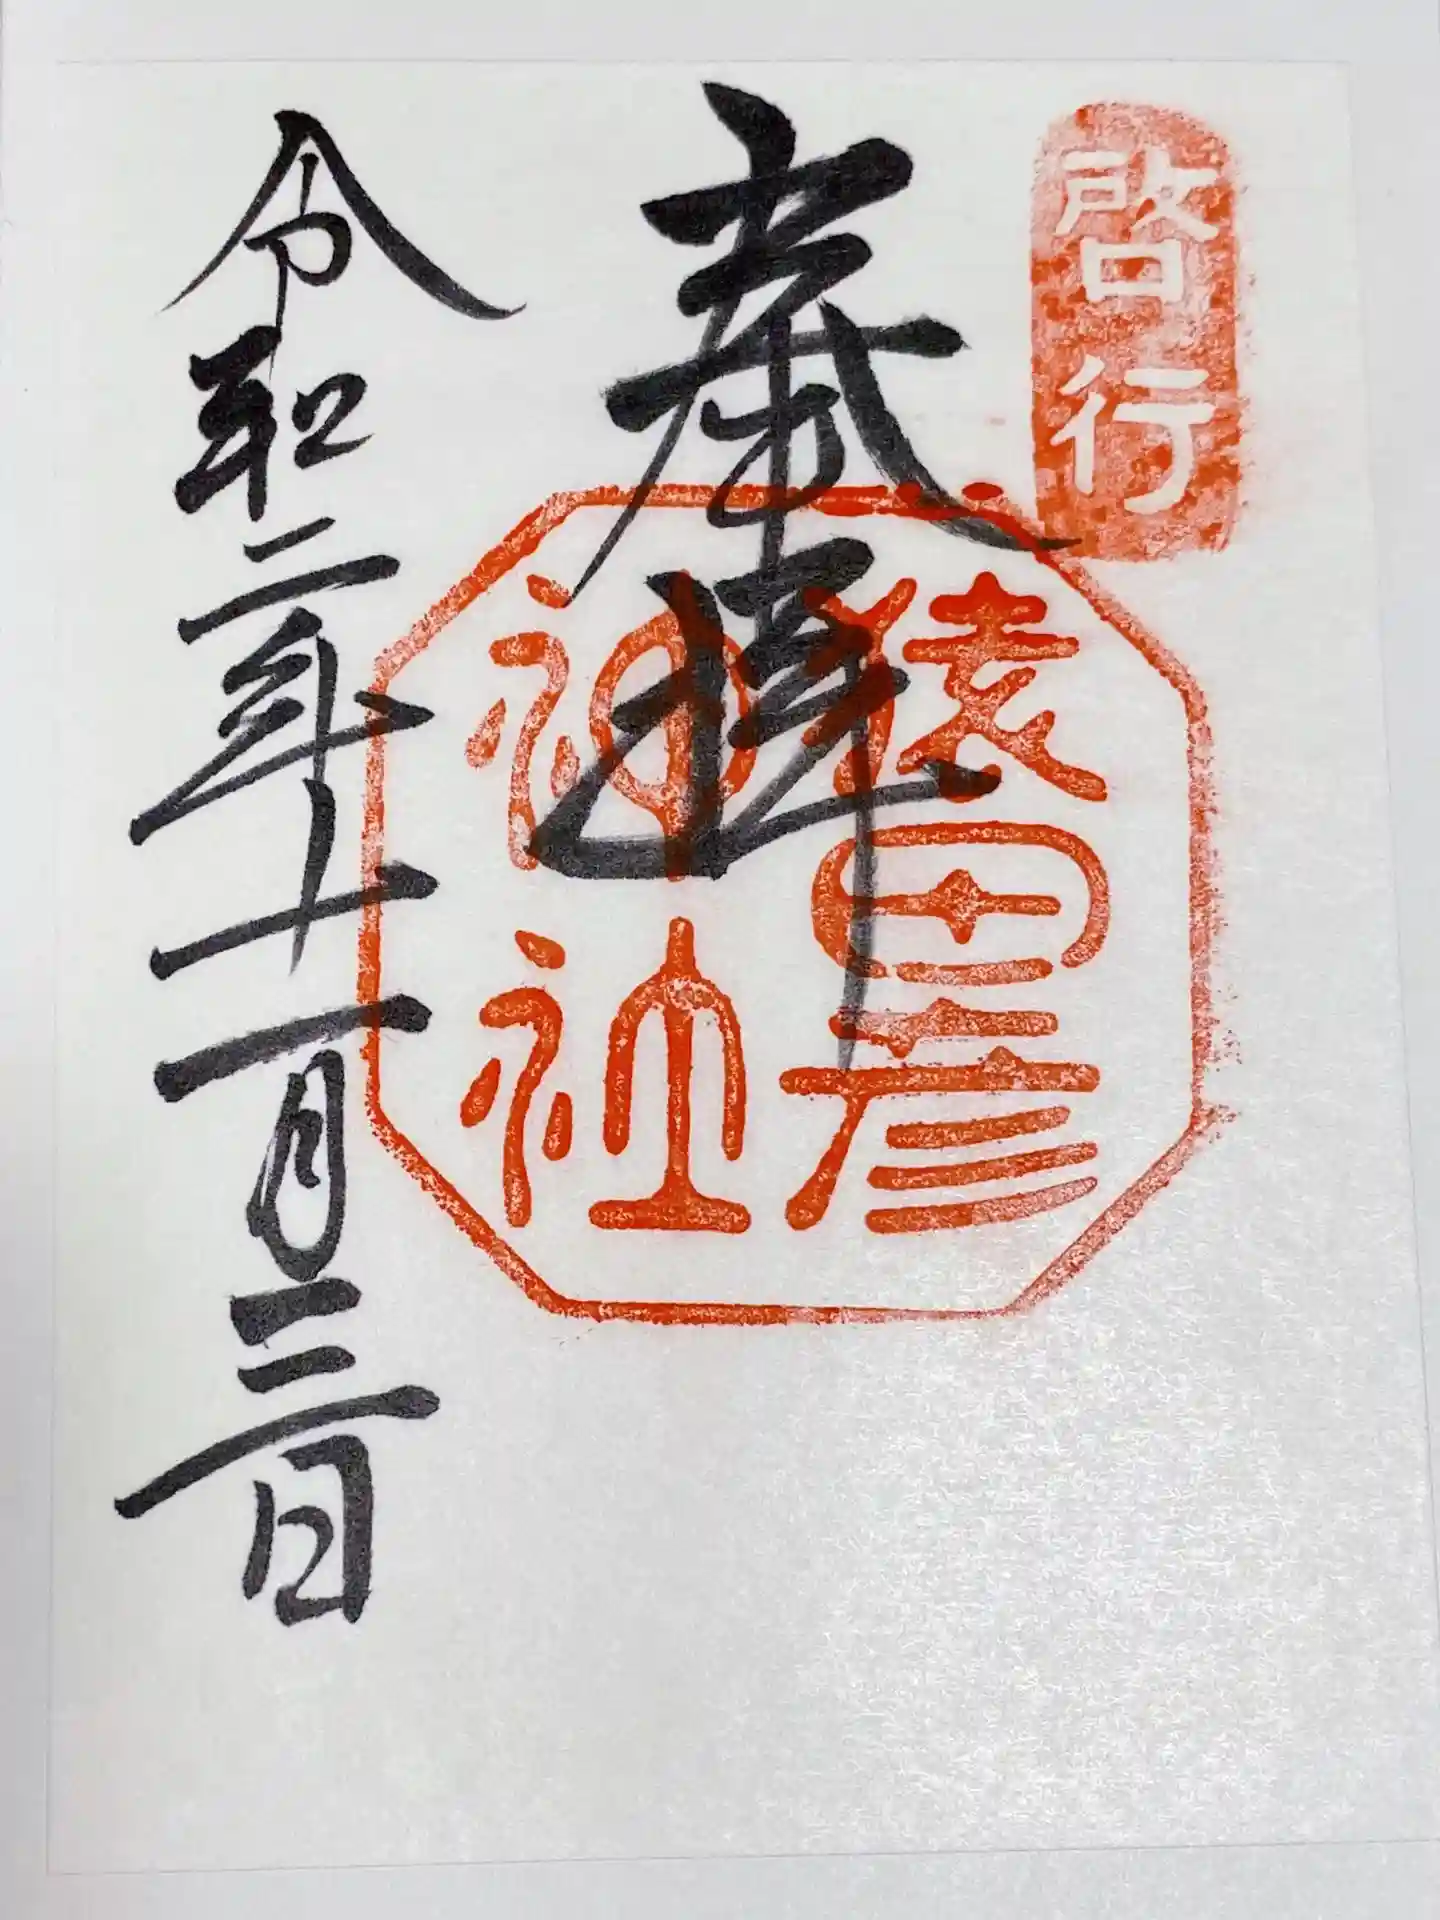 啓行
奉拝
猿田彦
神社
令和二年十一月三日